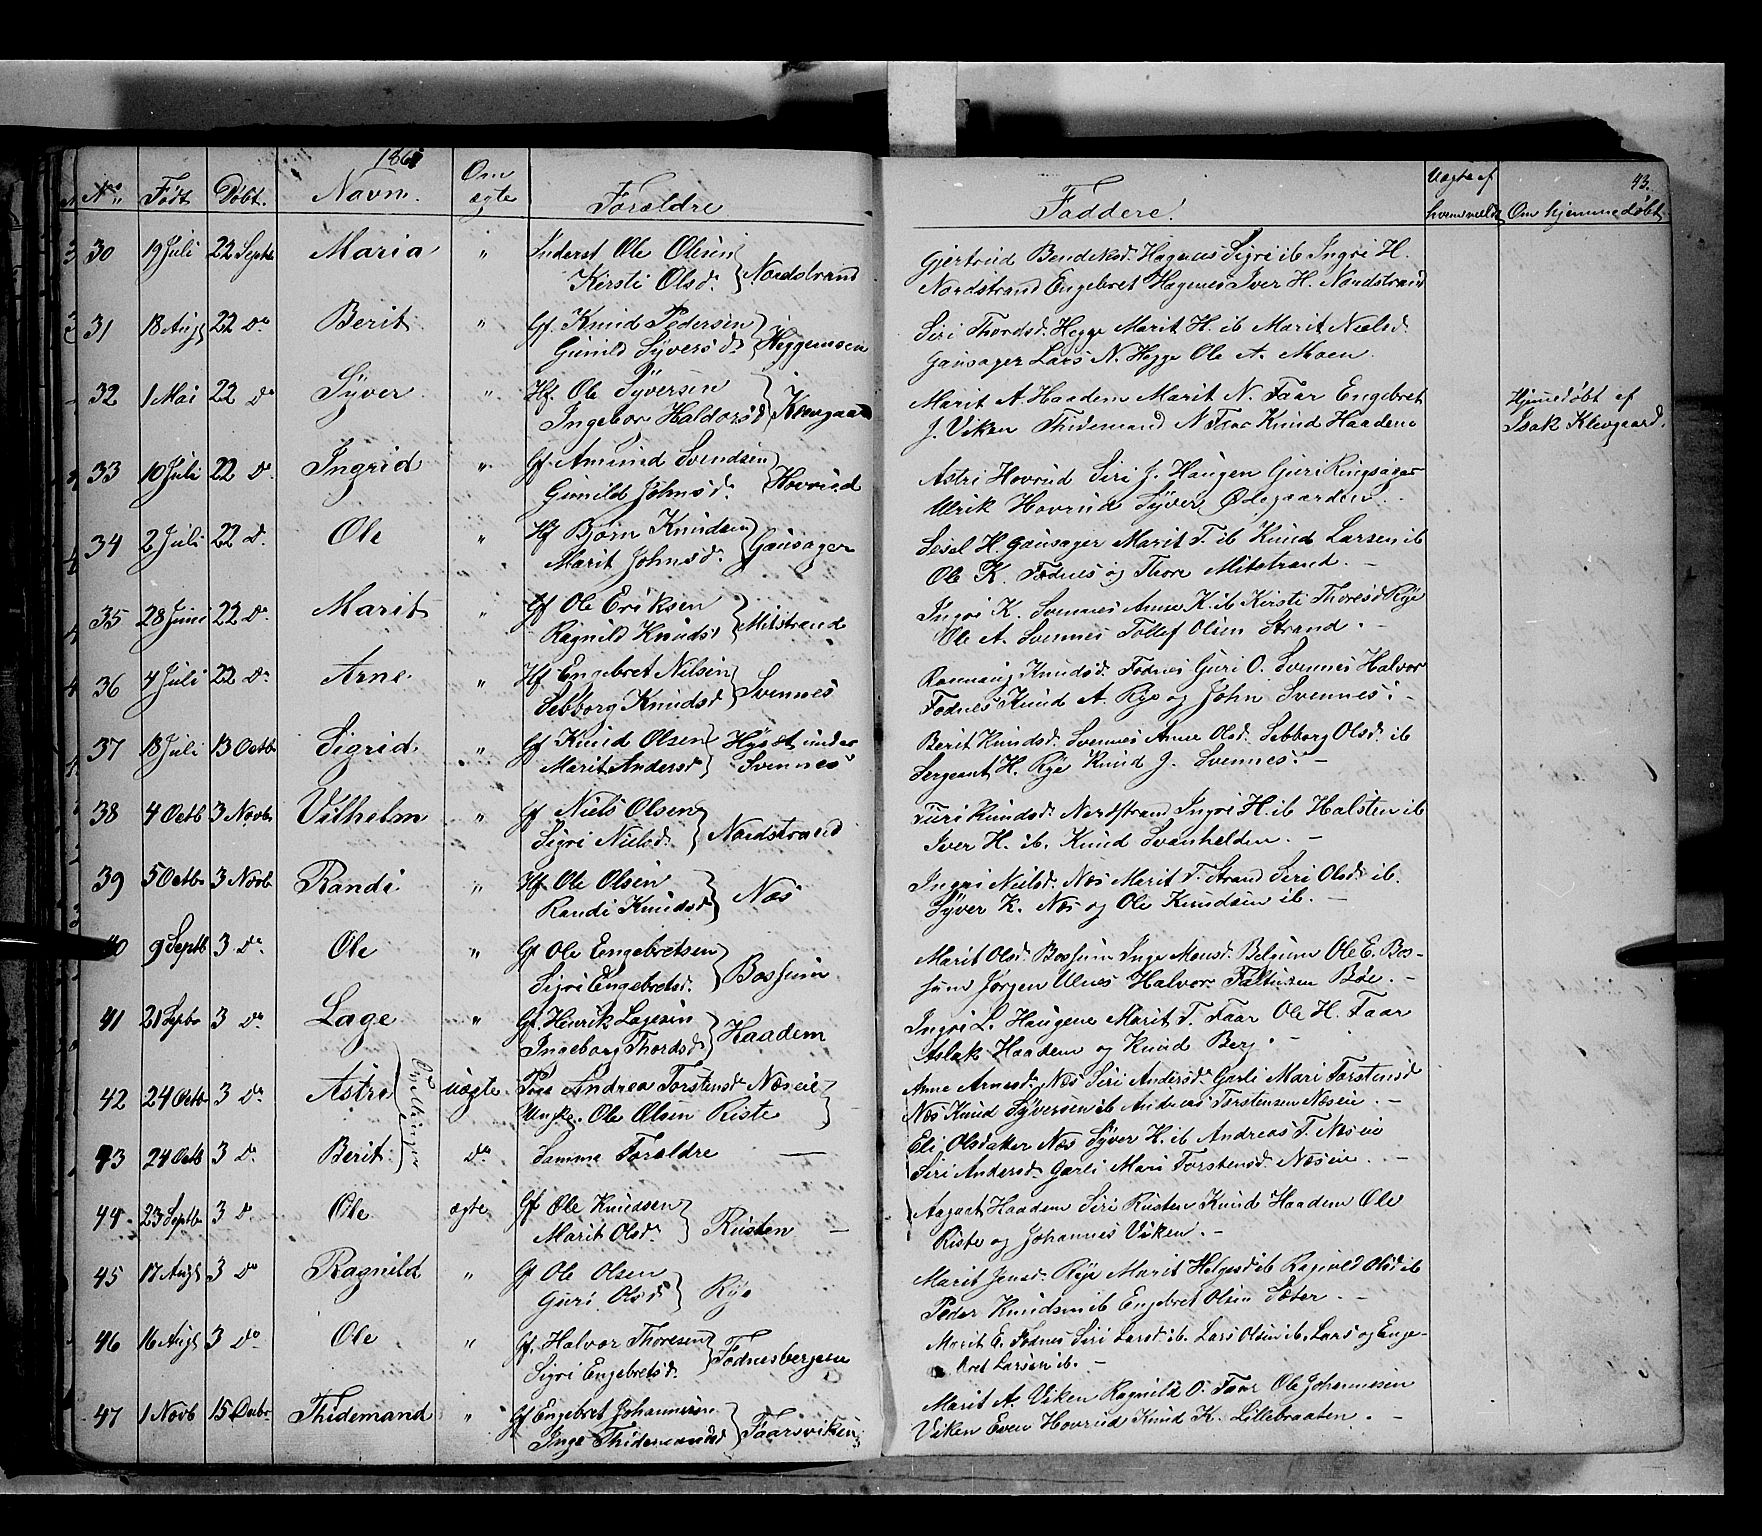 186
43.
No. Født Døbt. Navn. Om ægte Forældre Faddere. Uægte af hvem meldt Om hjemmedøbt
30 19 Juli 22 Septb Maria " Inderst Ole Olsen Gjertrud Bendiksd. Hagenes Sigri ib Ingri H.
Kirsti Olsd. } Nordstrand Nordstrand Engebret Hagenes Iver H. Nordstrand
31 18 Aug 22 do Berit " Gf. Knud Pedersen Siri Thordsd. Hegge Marit H. ib Marit Nielsd.
Gunild Syversd. } Heggemoen Gausager Lars N. Hegge Ole A. Moen.
32 1 Mai 22 do Syver " Hf. Ole Syversen Marit A. Haadem Marit N. Faar Engebret Hjemmedøbt af
Ingebor Haldorsd } Klevgaard J. Viken Thidemand N. Faar Knud Haadem Isak Klevgaard.
33 10 Juli 22 do Ingrid " Gf. Amund Svendsen Astri Hovrud Siri J. Haugen Guri Ringsager
Gunild Johnsd. } Hovrud Ulrik Hovrud Syver Ødegaarden.
34 2 Juli 22 d. Ole " Hf Bjørn Knudsen Sesel H. Gausager Marit T. ib Knud Larsen ib
Marit Johnsd. } Gausager Ole K. Fodnes og Thore Mitstrand. -
35 28 Juni 22 do Marit " Gf Ole Eriksen Ingri K. Svennes Anne K. ib Kirsti Thoresd Rye
Ragnild Knudsd } Mitstrand Ole A. Svennes Tollef Olsen Strand. -
36 4 Juli 22 do Arne " Hf Engebret Nilsen Rannaug Knudsd. Fodnes Guri O. Svennes Halvor
Sebborg Knudsd } Svennes Fodnes Knud A. Rye og John Svennes. -
37 18 Juli 13 Octb Sigrid " Gf Knud Olsen Hysst. under Berit Knudsd. Svennes Anne Olsd. Sebborg Olsd. ib
Marit Andersd } Svennes Sergeant H. Rye Knud J. Svennes. -
38 4 Octb 3 Novb Vilhelm " Gf Niels Olsen Turi Knudsd. Nordstrand Ingri H. ib Halsten ib
Sigri Nielsd. } Nordstrand Iver H. ib. Knud Svanhelden. -
39 5 Octb 3 Novb Randi " Hf. Ole Olsen Ingri Nielsd. Næs Marit T. Strand Siri Olsd ib.
Randi Knudsd } Næs Syver K. Næs og Ole Knudsen ib. -
40 9 Septb 3 do Ole " Gf Ole Engebretsen Marit Olsd. Bossum Inge Monsd. Belgum Ole E. Bos-
Sigri Engebretsd. } Bossum sum Jørgen Ulnes Halvor Faltinsen Bøe. -
41 21 Septb 3 do Lage " Gf. Henrik Lagesen Ingri L. Haugene Marit T. Faar Ole H. Faar
Ingeborg Thordsd } Haadem Aslak Haadem og Knud Berg. -
42 24 Octb 3 do Astri } Tvillinger uægte. Pige Andrea Torstensd. Næseie Anne Arnesd. Næs Siri Andersd. Garli Mari Torstensd
Ungk. Ole Olsen Riste } Næs Knud Syversen ib Andreas Torstensen Næseie. -
43 24 Octb 3 do Berit. do Samme Forældre — Eli Olsdatter Næs Syver H. ib Andreas T. Næseie
Siri Andersd. Garli Mari Torstensd. Næseie. -
44 23 Septb 3 do Ole ægte Gf Ole Knudsen Aagaat Haadem Siri Rusten Knud Haadem Ole
Marit Olsd. } Rusten — Riste og Johannes Viken. -
45 17 Aug 3 do Ragnild " Gf Ole Olsen Marit Jensd. Rye Marit Helgesd ib Ragnild Olsd ib
Guri Olsd } Rye Peder Knudsen ib Engebret Olsen Sæter. -
46 16 Aug 3 do Ole " Gf. Halvor Thoresen Marit E. Fodnes Siri Larsd ib. Lars Olsen ib. Lars og Enge-
Sigri Engebretsd. } Fodnesbergene bret Larsen ib. -
47 1 Novb 15 Decbr Thidemand " Gf Engebret Johannesen Marit A. Viken Ragnild O. Faar Ole Johannesen
Inge Thidemandsd } Faarsviken Viken Even Hovrud Knud K. Lillebraaten. -